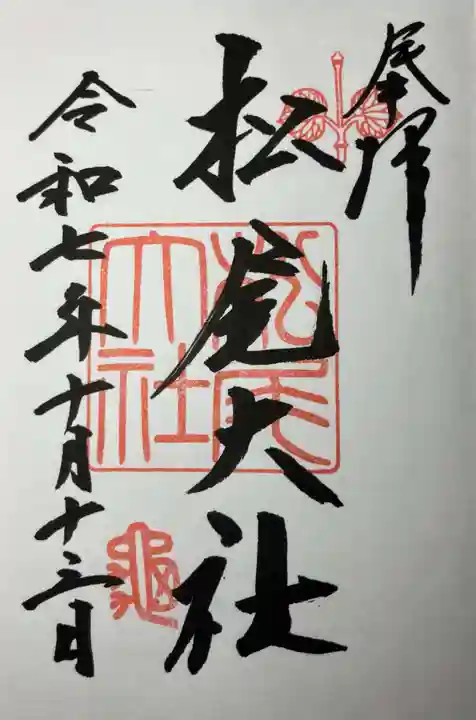 奉拝
松尾大社
松尾大社
龜
令和七年十月十三日